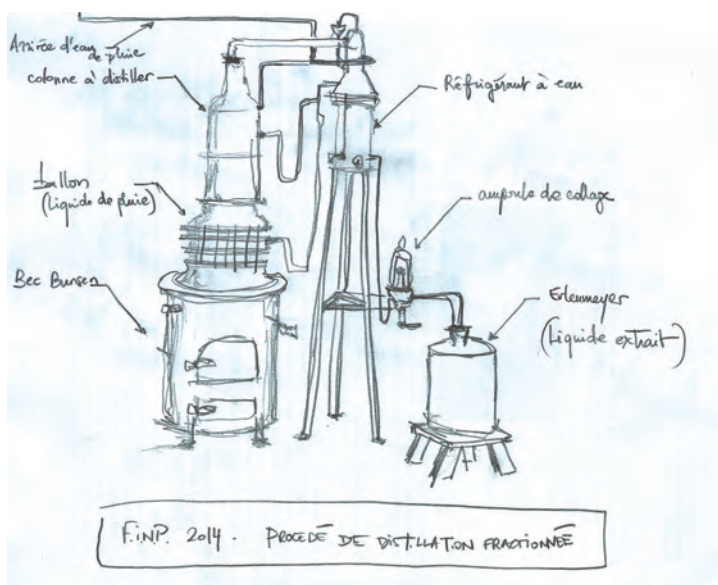 Arrivée d'eau
de pluie
colonne à distiller
Réfrigérant à eau
ballon
(Liquide de pluie)
ampoule de collage
Bec Bunsen
Erlenmeyer
(Liquide extrait)
F.iNP. 2014. PROCEDÉ DE DISTILLATION FRACTIONNÉE